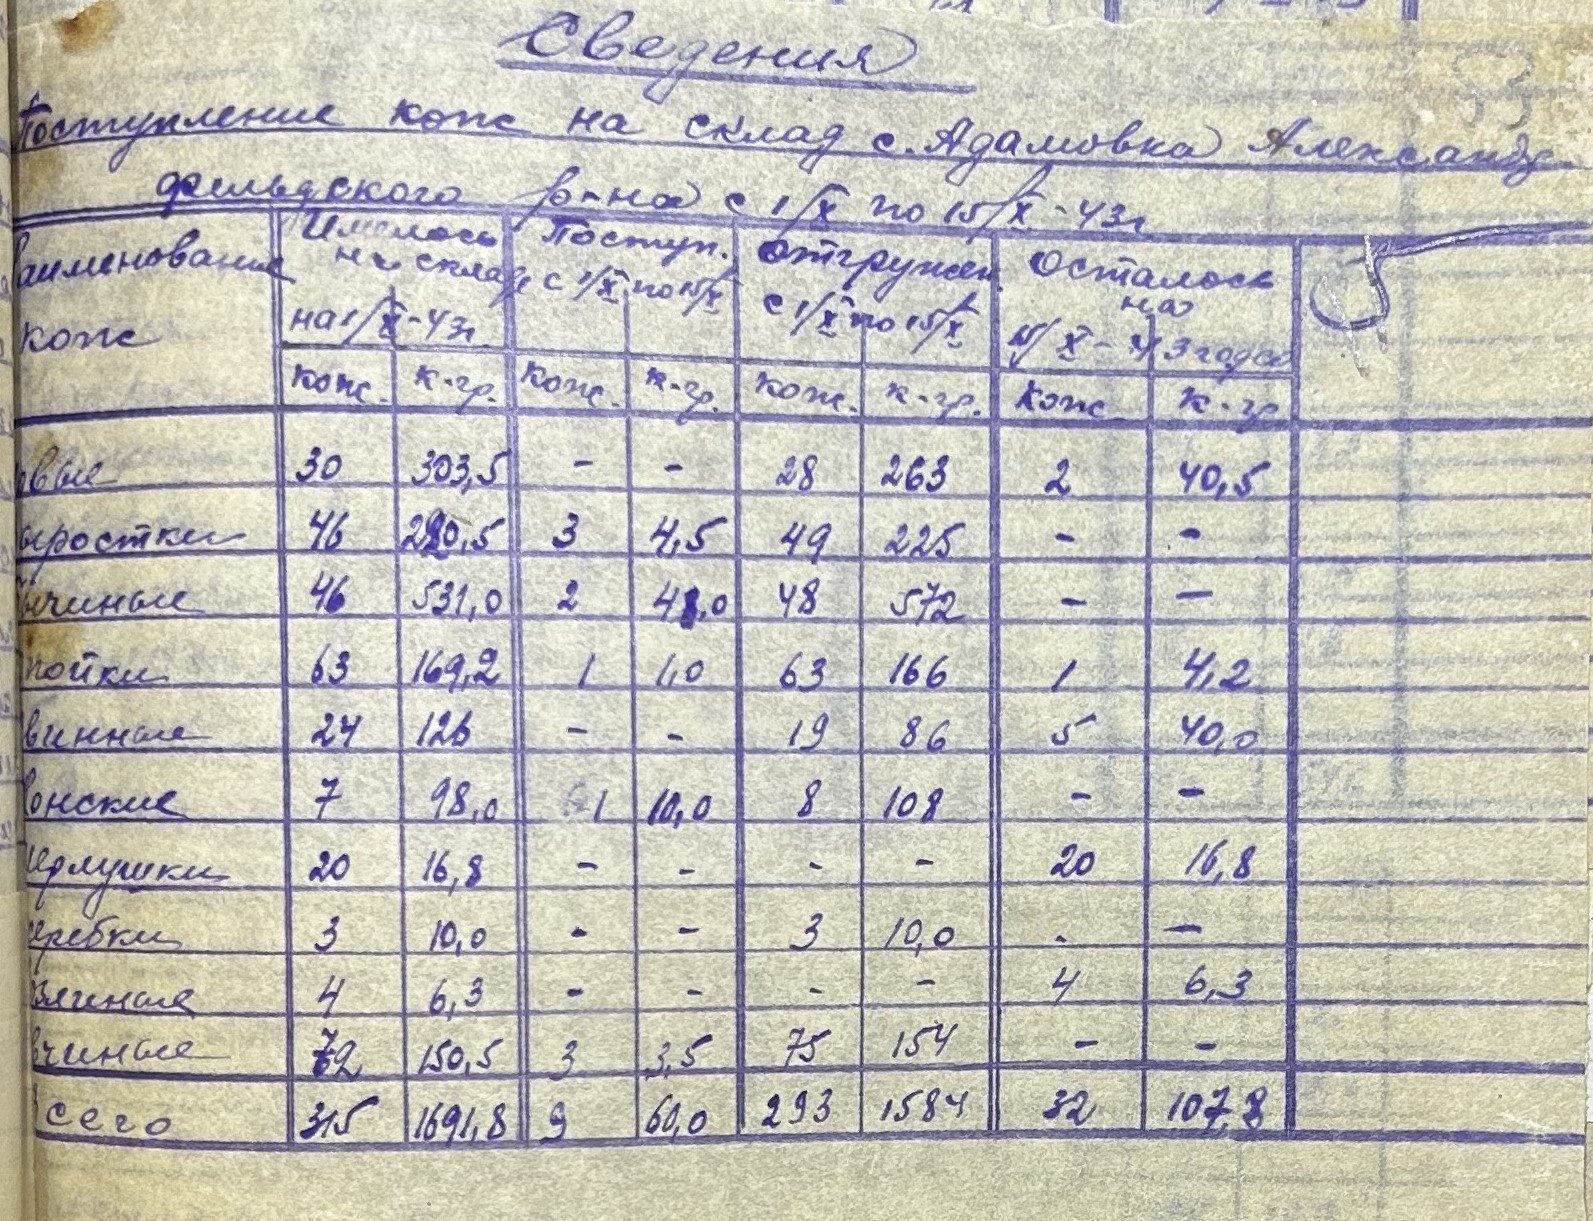 53
Сведения
Поступление кож на склад с. Адамовка Александр
фельдского р-на с 1/X по 15/X-43г
аименование кож | Имелось на складе на 1/X-43г | Поступ. с 1/X по 15/X | Отгружен. с 1/X по 15/X | Осталось на 15/X-43 года
кож. | к-гр. | кож. | к-гр. | кож. | к-гр. | кож. | к-гр
овые | 30 | 303,5 | - | - | 28 | 263 | 2 | 40,5
ыростки | 46 | 220,5 | 3 | 4,5 | 49 | 225 | - | -
ычиные | 46 | 531,0 | 2 | 41,0 | 48 | 572 | - | -
пойки | 63 | 169,2 | 1 | 1,0 | 63 | 166 | 1 | 4,2
винные | 24 | 126 | - | - | 19 | 86 | 5 | 40,0
онские | 7 | 98,0 | 1 | 10,0 | 8 | 108 | - | -
мерлушки | 20 | 16,8 | - | - | - | - | 20 | 16,8
еребки | 3 | 10,0 | - | - | 3 | 10,0 | - | -
озлиные | 4 | 6,3 | - | - | - | - | 4 | 6,3
вчиные | 72 | 150,5 | 3 | 3,5 | 75 | 154 | - | -
Всего | 315 | 1691,8 | 9 | 60,0 | 293 | 1584 | 32 | 107,8